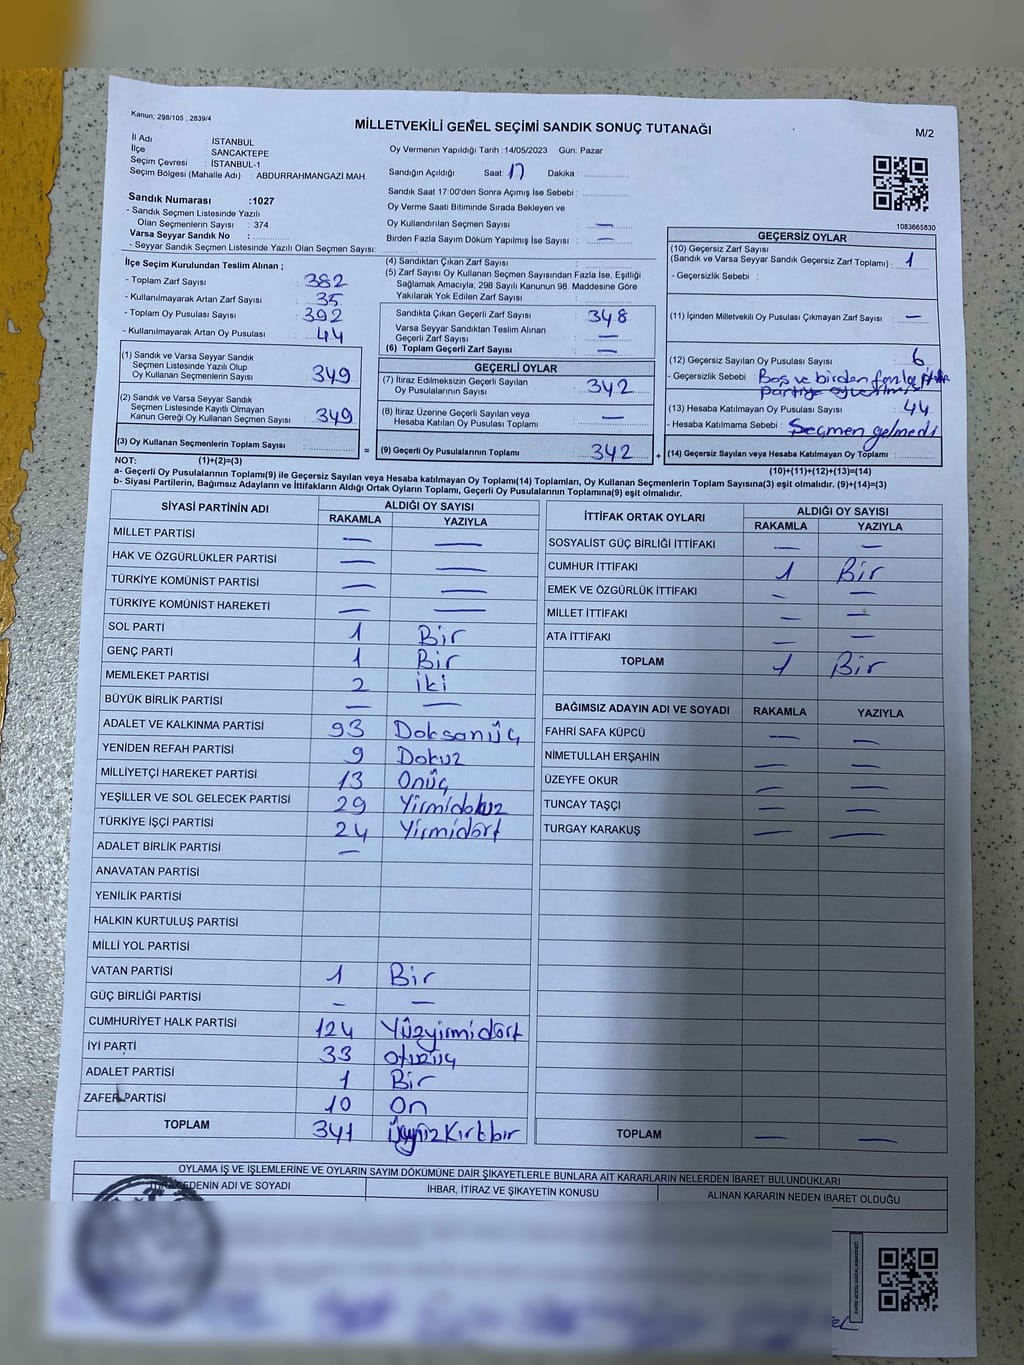 Kanun; 298/105 , 2839/4
MİLLETVEKİLİ GENEL SEÇİMİ SANDIK SONUÇ TUTANAĞI
M/2
İl Adı : İSTANBUL
İlçe : SANCAKTEPE
Seçim Çevresi : İSTANBUL-1
Seçim Bölgesi (Mahalle Adı) : ABDURRAHMANGAZİ MAH.
Oy Vermenin Yapıldığı Tarih :14/05/2023 Gün: Pazar
Sandığın Açıldığı Saat: 17 Dakika : ..............
Sandık Saat 17:00'den Sonra Açımış İse Sebebi : ..............
Oy Verme Saati Bitiminde Sırada Bekleyen ve
Oy Kullandırılan Seçmen Sayısı : —
Birden Fazla Sayım Döküm Yapılmış İse Sayısı : —
Sandık Numarası :1027
- Sandık Seçmen Listesinde Yazılı
Olan Seçmenlerin Sayısı : 374
Varsa Seyyar Sandık No : ..............
- Seyyar Sandık Seçmen Listesinde Yazılı Olan Seçmen Sayısı:
1083665830
İlçe Seçim Kurulundan Teslim Alınan ;
- Toplam Zarf Sayısı : 382
- Kullanılmayarak Artan Zarf Sayısı : 35
- Toplam Oy Pusulası Sayısı : 392
- Kullanılmayarak Artan Oy Pusulası : 44
(1) Sandık ve Varsa Seyyar Sandık
Seçmen Listesinde Yazılı Olup
Oy Kullanan Seçmenlerin Sayısı : 349
(2) Sandık ve Varsa Seyyar Sandık
Seçmen Listesinde Kayıtlı Olmayan
Kanun Gereği Oy Kullanan Seçmen Sayısı : 349
(3) Oy Kullanan Seçmenlerin Toplam Sayısı : ..............
(4) Sandıktan Çıkan Zarf Sayısı : ..............
(5) Zarf Sayısı Oy Kullanan Seçmen Sayısından Fazla İse, Eşitliği
Sağlamak Amacıyla, 298 Sayılı Kanunun 98. Maddesine Göre
Yakılarak Yok Edilen Zarf Sayısı : ..............
Sandıkta Çıkan Geçerli Zarf Sayısı : 348
Varsa Seyyar Sandıktan Teslim Alınan
Geçerli Zarf Sayısı : —
(6) Toplam Geçerli Zarf Sayısı : —
GEÇERLİ OYLAR
(7) İtiraz Edilmeksizin Geçerli Sayılan
Oy Pusulalarının Sayısı : 342
(8) İtiraz Üzerine Geçerli Sayılan veya
Hesaba Katılan Oy Pusulaları Toplamı : —
= (9) Geçerli Oy Pusulalarının Toplamı : 342 +
GEÇERSİZ OYLAR
(10) Geçersiz Zarf Sayısı
(Sandık ve Varsa Seyyar Sandık Geçersiz Zarf Toplamı) : 1
- Geçersizlik Sebebi :
(11) İçinden Milletvekili Oy Pusulası Çıkmayan Zarf Sayısı : —
(12) Geçersiz Sayılan Oy Pusulası Sayısı : 6
- Geçersizlik Sebebi : Boş ve birden fazla
partiye
(13) Hesaba Katılmayan Oy Pusulası Sayısı : 44
- Hesaba Katılmama Sebebi : Seçmen gelmedi
(14) Geçersiz Sayılan veya Hesaba Katılmayan Oy Toplamı : ..............
NOT: (1)+(2)=(3)
(10)+(11)+(12)+(13)=(14)
a- Geçerli Oy Pusulalarının Toplamı(9) ile Geçersiz Sayılan veya Hesaba katılmayan Oy Toplamı(14) Toplamları, Oy Kullanan Seçmenlerin Toplam Sayısına(3) eşit olmalıdır. (9)+(14)=(3)
b- Siyasi Partilerin, Bağımsız Adayların ve İttifakların Aldığı Ortak Oyların Toplamı, Geçerli Oy Pusulalarının Toplamına(9) eşit olmalıdır.
SİYASİ PARTİNİN ADI ALDIĞI OY SAYISI
RAKAMLA YAZIYLA
MİLLET PARTİSİ — —
HAK VE ÖZGÜRLÜKLER PARTİSİ — —
TÜRKİYE KOMÜNİST PARTİSİ — —
TÜRKİYE KOMÜNİST HAREKETİ — —
SOL PARTİ 1 Bir
GENÇ PARTİ 1 Bir
MEMLEKET PARTİSİ 2 iki
BÜYÜK BİRLİK PARTİSİ — —
ADALET VE KALKINMA PARTİSİ 93 Doksanüç
YENİDEN REFAH PARTİSİ 9 Dokuz
MİLLİYETÇİ HAREKET PARTİSİ 13 Onüç
YEŞİLLER VE SOL GELECEK PARTİSİ 29 Yirmidokuz
TÜRKİYE İŞÇİ PARTİSİ 24 Yirmidört
ADALET BİRLİK PARTİSİ —
ANAVATAN PARTİSİ
YENİLİK PARTİSİ
HALKIN KURTULUŞ PARTİSİ
MİLLİ YOL PARTİSİ
VATAN PARTİSİ 1 Bir
GÜÇ BİRLİĞİ PARTİSİ — —
CUMHURİYET HALK PARTİSİ 124 Yüzyirmidört
İYİ PARTİ 33 otuzüç
ADALET PARTİSİ 1 Bir
ZAFER PARTİSİ 10 On
TOPLAM 341 Üçyüz Kırkbir
İTTİFAK ORTAK OYLARI ALDIĞI OY SAYISI
RAKAMLA YAZIYLA
SOSYALİST GÜÇ BİRLİĞİ İTTİFAKI — —
CUMHUR İTTİFAKI 1 Bir
EMEK VE ÖZGÜRLÜK İTTİFAKI — —
MİLLET İTTİFAKI — —
ATA İTTİFAKI — —
TOPLAM 1 Bir
BAĞIMSIZ ADAYIN ADI VE SOYADI RAKAMLA YAZIYLA
FAHRİ SAFA KÜPCÜ — —
NİMETULLAH ERŞAHİN — —
ÜZEYFE OKUR — —
TUNCAY TAŞÇI — —
TURGAY KARAKUŞ — —
TOPLAM — —
OYLAMA İŞ VE İŞLEMLERİNE VE OYLARIN SAYIM DÖKÜMÜNE DAİR ŞİKAYETLERLE BUNLARA AİT KARARLARIN NELERDEN İBARET BULUNDUKLARI
İTİRAZ EDENİN ADI VE SOYADI İHBAR, İTİRAZ VE ŞİKAYETİN KONUSU ALINAN KARARIN NEDEN İBARET OLDUĞU